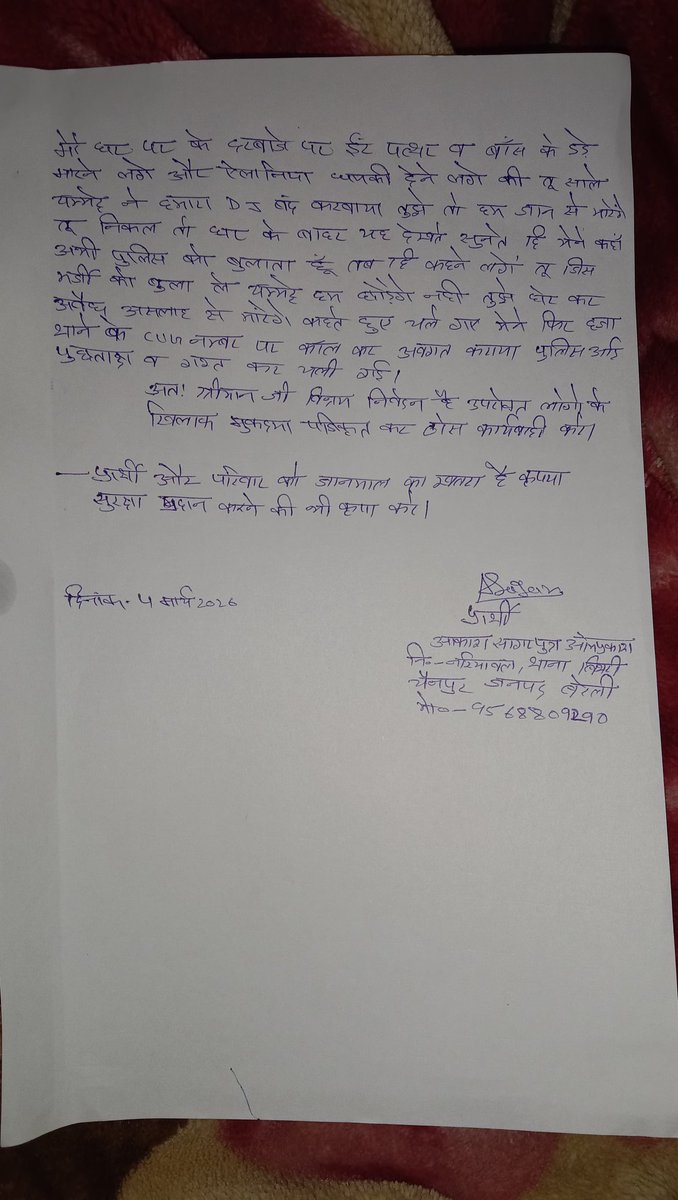 मेरे घर पर के दरबाजे पर ईट पत्थर व बाँस के डंडे
मारने लगे और ऐलानिया धमकी देने लगे की तू साले
चम्मेट्टे ने हमारा DJ बंद करबाया तुझे तो हम जान से मारेंगे
तू निकल तो घर के बाहर यह देखते सुनते हि मेने कहाँ
अभी पुलिस को बुलाता हूँ तब हि कहने लगे तू जिस
मर्जी को बुला ले हम छोड़ेगे नही तुझे घेर कर
अवैध असलाह से मारेंगे कहते हुए चले गए मेने फिर
थाने के CUG नम्बर पर काॅल कर अवगत कराया पुलिस आई
पुछताछ व गस्त कर चली गई।
अतः श्रीमान जी विनम्र निवेदन है उपरोक्त लोगो के
खिलाफ मुकदमा पंजिकृत कर ठोस कार्यवाही करे।
— प्रार्थी और परिवार को जानमाल का खतरा है कृपया
सुरक्षा प्रदान करने की भी कृपा करे।
दिनांक- 4 मार्च 2026
प्रार्थी
आकाश सागर पुत्र ओमप्रकाश
नि०- नरियावल, थाना बिथरी
चैनपुर जनपद बरेली
मो०- 9568809290